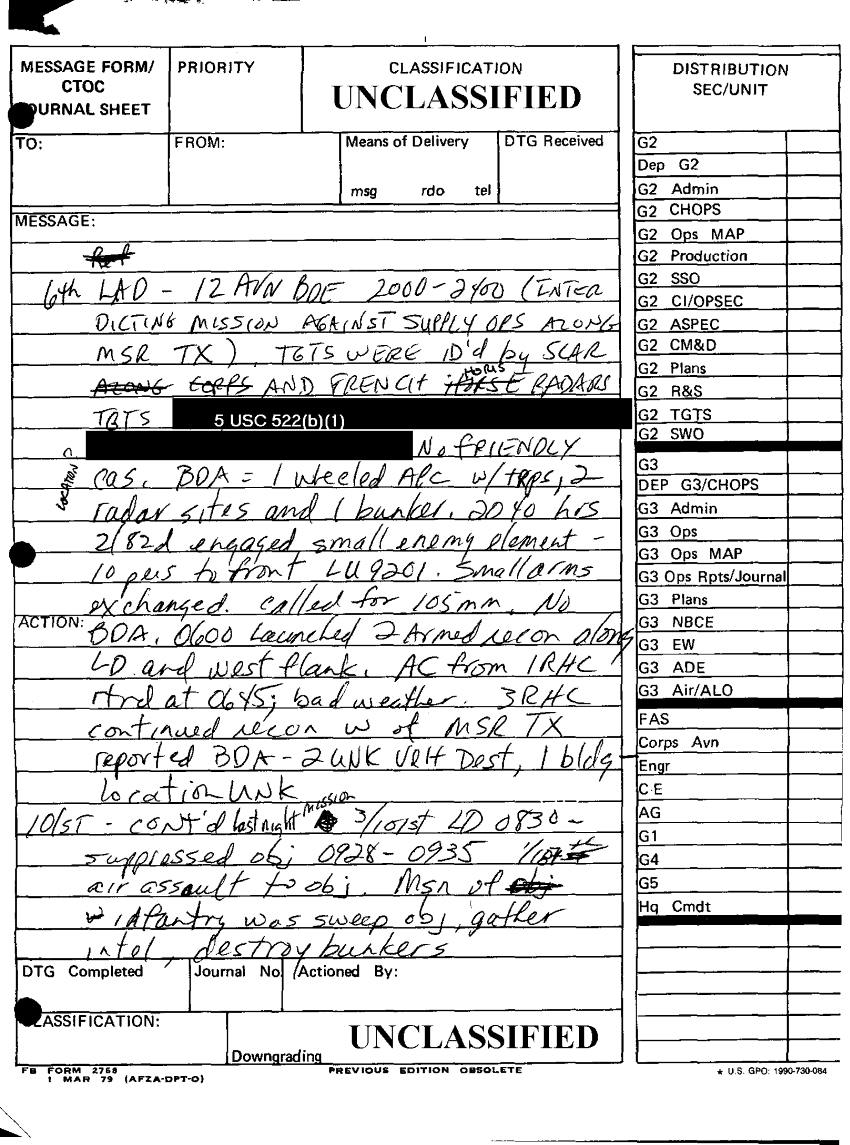 MESSAGE FORM/
CTOC
JOURNAL SHEET
PRIORITY
CLASSIFICATION
UNCLASSIFIED
TO:
FROM:
Means of Delivery
msg rdo tel
DTG Received
MESSAGE:
6th LAD - 12 AVN BDE 2000-2400 (INTER
DICTING MISSION AGAINST SUPPLY OPS ALONG
MSR TX), TGTS WERE ID'd by SLAR
ALONG CORPS AND FRENCH HORUS RADARS
TGTS 5 USC 522(b)(1)
No FRIENDLY
LOCATION ?
cas. BDA = 1 wheeled APC w/trps, 2
radar sites and 1 bunker. 2040 hrs
2/82d engaged small enemy element -
10 pers to front LU9201. Small arms
exchanged. called for 105mm. No
ACTION:
BDA. 0600 Launched 2 Armed recon along
LD and west flank. AC from 1RHC
rtrd at 0645; bad weather. 3RHC
continued recon w of MSR TX
reported BDA - 2 UNK VEH Dest, 1 bldg
location UNK
101ST - CONT'd last night mission 3/101st LD 0830 -
suppressed obj 0928-0935
air assault to obj. Msn of obj
infantry was sweep obj, gather
intel, destroy bunkers
DTG Completed
Journal No.
Actioned By:
CLASSIFICATION:
UNCLASSIFIED
Downgrading
FB FORM 2768
1 MAR 79 (AFZA-DPT-O)
PREVIOUS EDITION OBSOLETE
DISTRIBUTION
SEC/UNIT
G2
Dep G2
G2 Admin
G2 CHOPS
G2 Ops MAP
G2 Production
G2 SSO
G2 CI/OPSEC
G2 ASPEC
G2 CM&D
G2 Plans
G2 R&S
G2 TGTS
G2 SWO
G3
DEP G3/CHOPS
G3 Admin
G3 Ops
G3 Ops MAP
G3 Ops Rpts/Journal
G3 Plans
G3 NBCE
G3 EW
G3 ADE
G3 Air/ALO
FAS
Corps Avn
Engr
C-E
AG
G1
G4
G5
Hq Cmdt
★ U.S. GPO: 1990-730-084